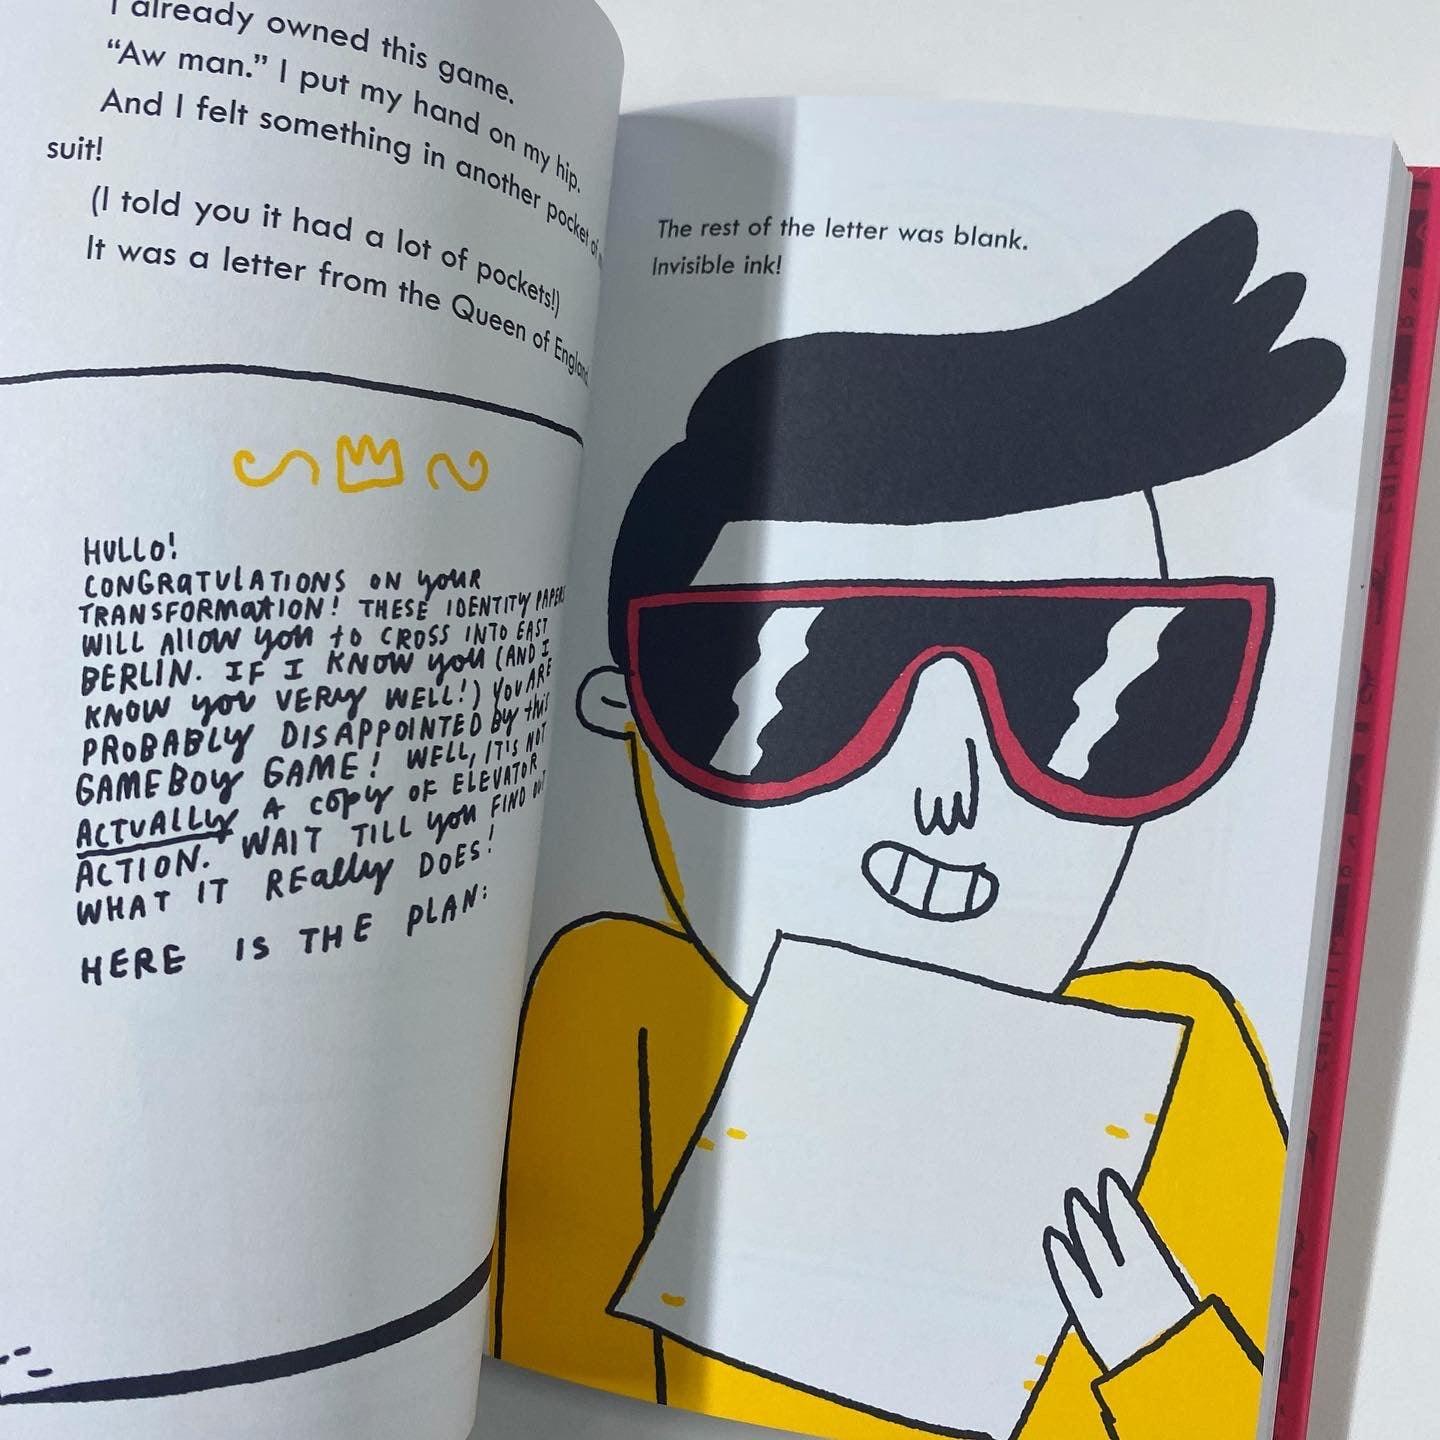 I already owned this game.
“Aw man.” I put my hand on my hip.
And I felt something in another pocket of
suit!
(I told you it had a lot of pockets!)
It was a letter from the Queen of England
HULLO!
CONGRATULATIONS ON YOUR
TRANSFORMATION! THESE IDENTITY PAPERS
WILL ALLOW YOU TO CROSS INTO EAST
BERLIN. IF I KNOW YOU (AND I
KNOW YOU VERY WELL!) YOU ARE
PROBABLY DISAPPOINTED BY THIS
GAMEBOY GAME! WELL, IT'S NOT
ACTUALLY A COPY OF ELEVATOR
ACTION. WAIT TILL YOU FIND OUT
WHAT IT REALLY DOES!
HERE IS THE PLAN:
The rest of the letter was blank.
Invisible ink!